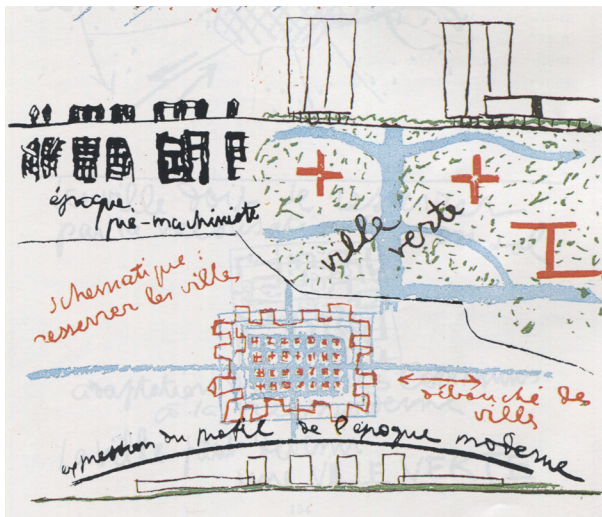 époque
pré-machiniste
ville verte
schématique :
resserrer les villes
débauche des
villes
expression du profil de l'époque moderne